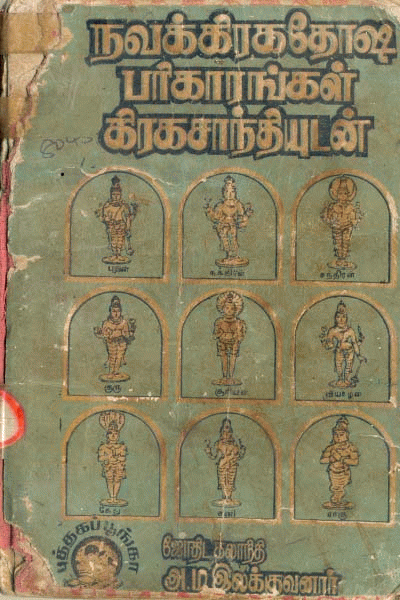 நவக்கிரகதோஷ
பரிகாரங்கள்
கிரகசாந்தியுடன்
புதன்
சுக்கிரன்
சந்திரன்
குரு
சூரியன்
கேது
சனி
ராகு
புத்தகப்பூங்கா
ஜோதிட கலாநிதி
ஆ.ம.இலக்குவனார்